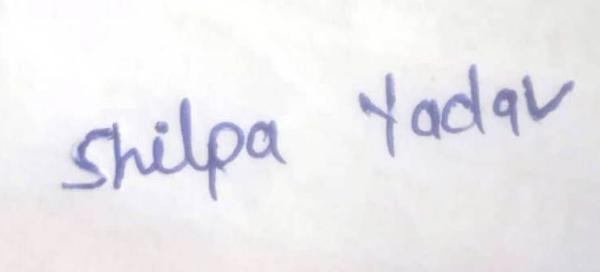 Shilpa Yadav